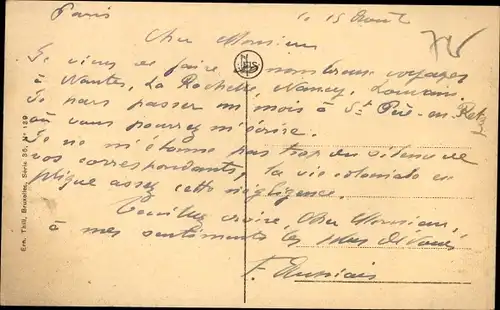 Paris le 15 Août
Cher Monsieur
Je viens de faire de nombreux voyages
à Nantes, La Rochelle, Nancy, Louvain.
Je pars passer un mois à St Père-en-Retz
où vous pourrez m'écrire.
Je ne m'étonne pas trop du silence de
vos correspondants, la vie coloniale ex
plique assez cette négligence.
Veuillez croire, Cher Monsieur,
à mes sentiments les plus dévoués
F.
NELS
Ern. Thill, Bruxelles, Série 35, N° 139